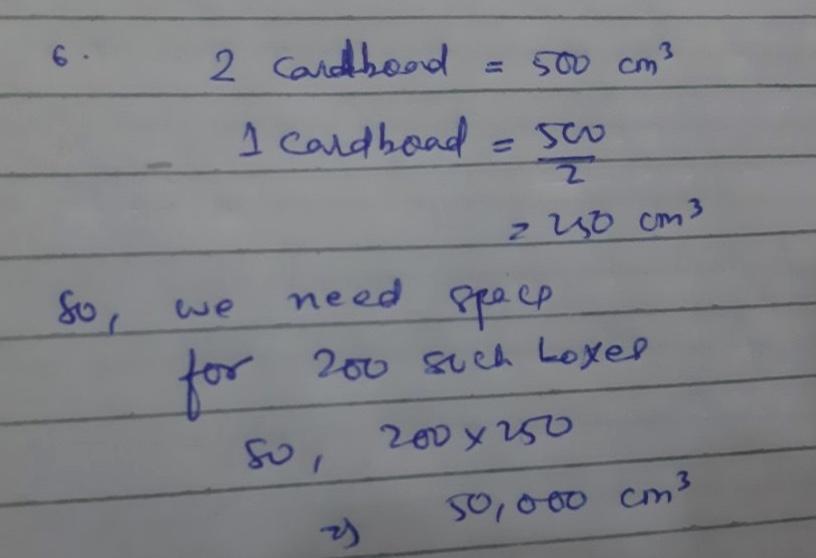 6. 2 Cardboad = 500 cm³
1 Cardboad = 500/2
= 250 cm³
So, we need space
for 200 such boxes
So, 200 x 250
=> 50,000 cm³